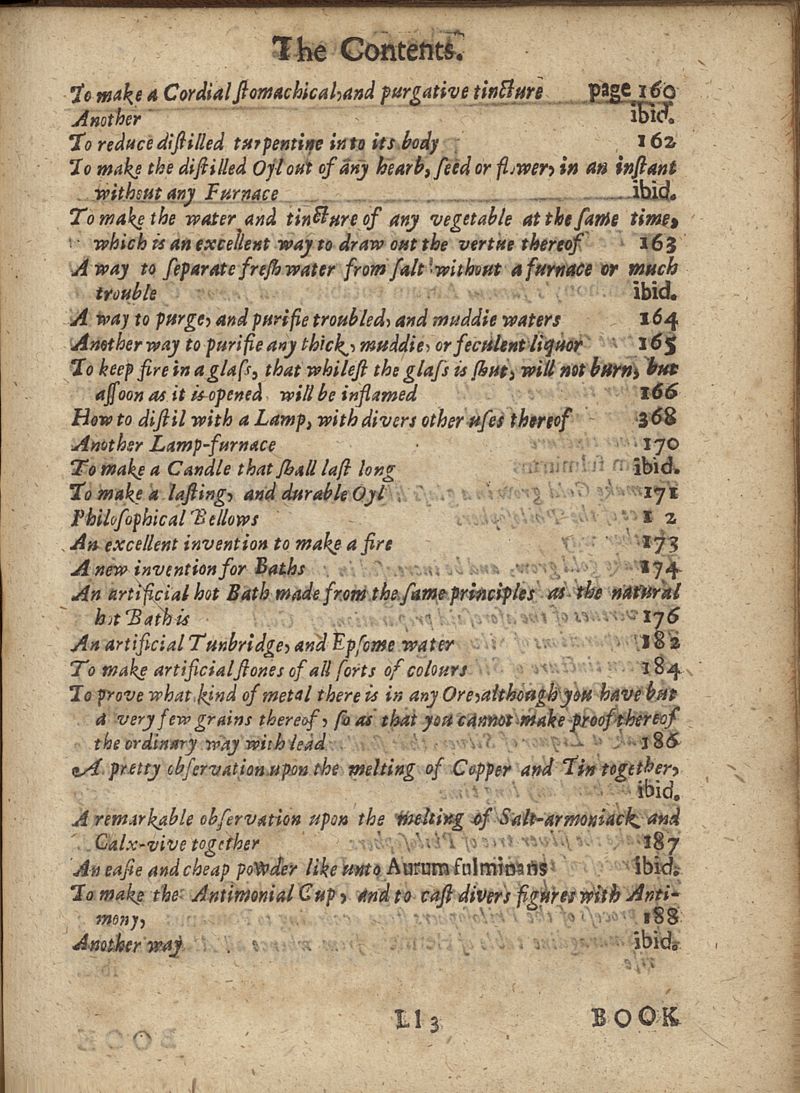 The Contents.
To make a Cordial ſtomachical, and purgative tincture page 160
Another ibid.
To reduce diſtilled turpentine into its body 162
To make the diſtilled Oyl out of any hearb, ſeed or flower, in an inſtant
without any Furnace ibid.
To make the water and tincture of any vegetable at the ſame time,
which is an excellent way to draw out the vertue thereof 163
A way to ſeparate freſh water from ſalt without a furnace or much
trouble ibid.
A way to purge, and purifie troubled, and muddie waters 164
Another way to purifie any thick, muddie, or feculent liquor 165
To keep fire in a glaſs, that whileſt the glaſs is ſhut, will not burn, but
aſſoon as it is opened will be inflamed 166
How to diſtil with a Lamp, with divers other uſes thereof 368
Another Lamp-furnace 170
To make a Candle that ſhall laſt long ibid.
To make a laſting, and durable Oyl 171
Philoſophical Bellows 1 2
An excellent invention to make a fire 173
A new invention for Baths 174
An artificial hot Bath made from the ſame principles as the natural
hot Bath is 176
An artificial Tunbridge, and Epſome water 182
To make artificial ſtones of all ſorts of colours 184
To prove what kind of metal there is in any Ore, although you have but
a very few grains thereof, ſo as that you cannot make proof thereof
the ordinary way with lead 186
A pretty obſervation upon the melting of Copper and Tin together,
ibid.
A remarkable obſervation upon the melting of Salt-armoniack, and
Calx-vive together 187
An eaſie and cheap powder like unto Aurum fulminans ibid.
To make the Antimonial Cup, and to caſt divers figures with Anti-
mony, 188
Another way ibid.
Ll 3 BOOK